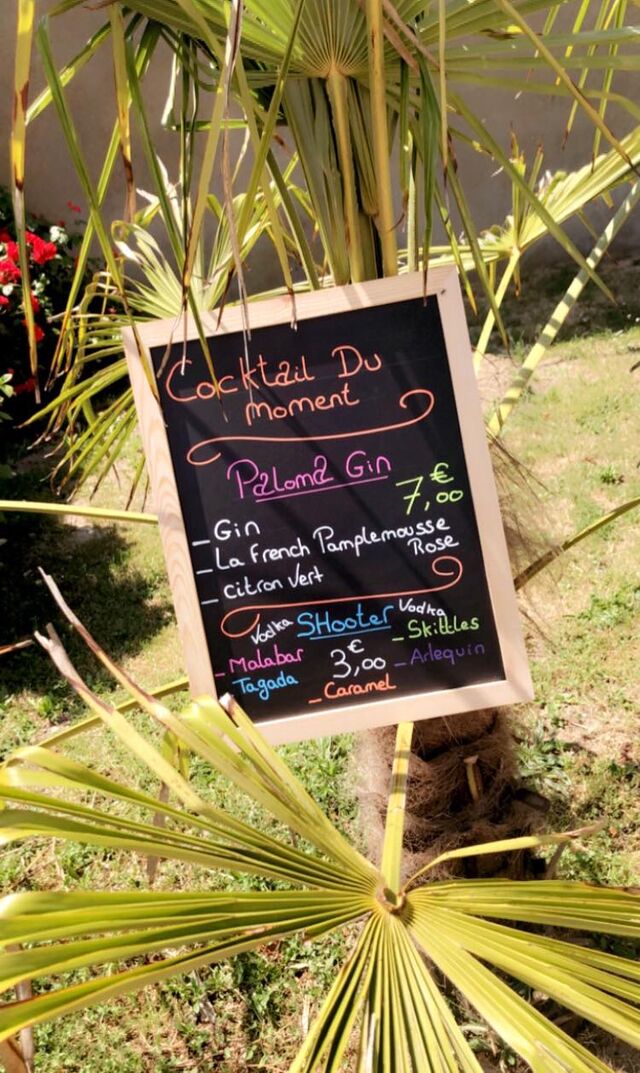 Cocktail Du
Moment
Paloma Gin
7,00€
- Gin
- La French Pamplemousse
Rose
- citron Vert
Vodka SHooter Vodka
- Malabar
- Tagada
3,00€
- Caramel
- Skittles
- Arlequin